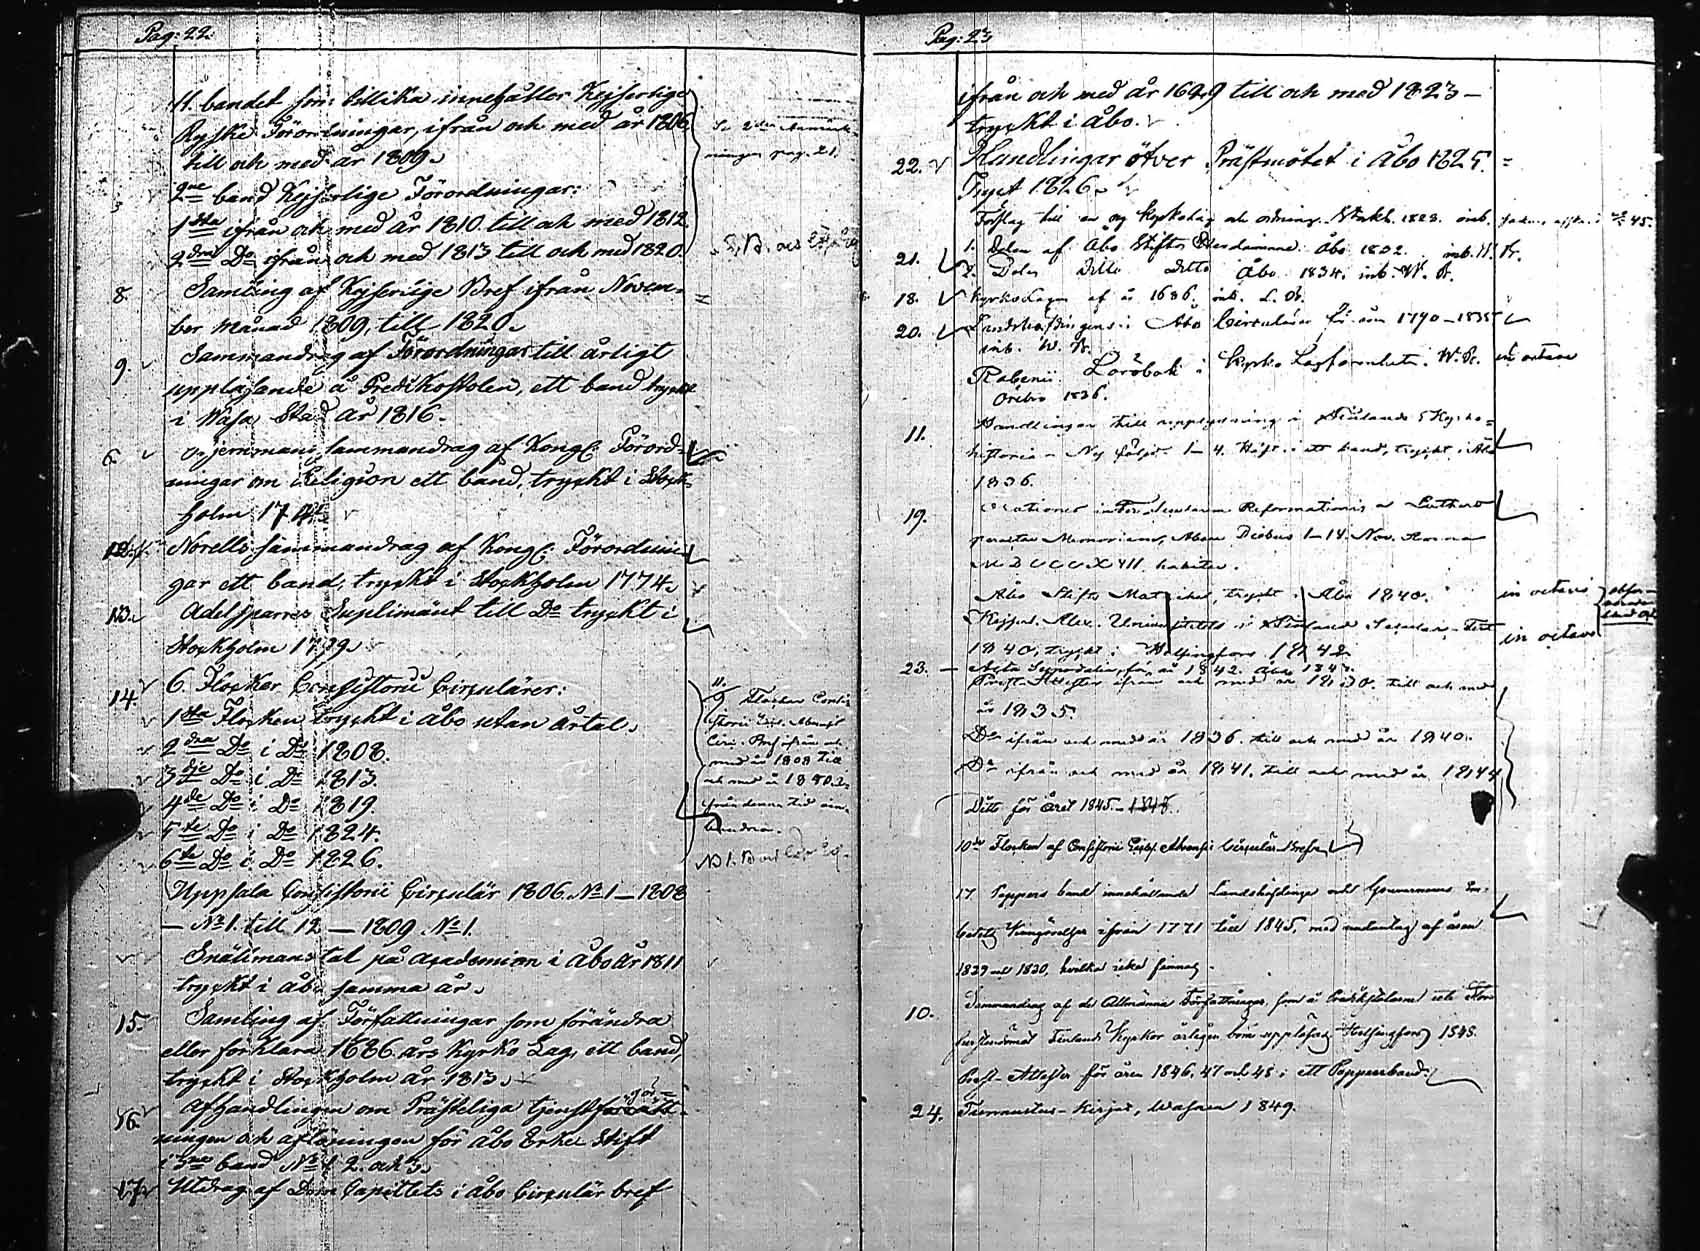 Pag: 22.
11. bandet som tillika innehåller Kejserlige
Ryske Förordningar, ifrån och med år 1808
till och med år 1809.
2ne band Kejserlige Förordningar:
1sta ifrån och med år 1810. till och med 1812.
2dra Do ifrån och med 1813 till och med 1820.
8. Samling af Kejserlige Bref ifrån Novem-
ber månad 1809, till 1820.
9. Sammandrag af Förordningar till årligt
uppläsande å Predikostolen, ett band tryckt
i Wasa Stad år 1816.
6. sammandrag af Kongl: Förord-
ningar om Religion ett band, tryckt i Stock-
holm 174
Norells sammandrag af Kongl: Förordnin
gar ett band, tryckt i Stockholm 1774.
13. Adelsparres Suplimänt till Do tryckt i
Stockholm
14. 6. Flocker Consistorii Cirkulärer:
1sta Flocken tryckt i Åbo utan årtal.
2dra Do i Do 1808.
3dje Do i Do 1813.
4de Do i Do 1819.
5te Do i Do 1824.
6te Do i Do 1826.
Uppsala Consistorii Cirkulär 1806. No 1 — 1808
— No 1. till 12 — 1809. No 1.
Snällmans tal på Academien i Åbo år 1811
tryckt i Åbo samma år.
15. Samling af Författningar som förändra
eller förklara 1686 års Kyrko Lag, ett band,
tryckt i Stockholm år 1813.
16. Afhandlingen om Prästeliga tjenstförrätt-
ningen och aflöningen för Åbo Erke Stift
i 3ne band No 1. 2. och 3.
17. Utdrag af Dom Capitlets i Åbo Cirkulär bref
Se 2dra Anmärk-
ningen pag. 21.
9 Flockar Consi-
storii Eccl. Aboens.
Circ. Bref ifrån och
med år 1808 till
från denna tid oin-
bundna.
Pag: 23
ifrån och med år 1649 till och med 1823 —
tryckt i Åbo.
22. Handlingar öfver Prästmötet i Åbo 1825.
Tryckt 1826.
Förslag till en ny Kyrkolag och ordning. Stockh. 1828. inb.
21. 1. Delen af Åbo Stifts Herdaminne. Åbo 1802. inb. W. Br.
2. Delen ditto ditto Åbo 1834. inb. W. B.
18. KyrkoLagen af år 1686. inb. L. B.
20. Landshöfdingens i Åbo Circulärer för åren 1790 – 1835
inb. W. B.
Rabenii Lärobok i Kyrko Lagfarenheten. W. B. in octavo
Örebro 1836.
11. Handlingar till upplysning i Finlands Kyrko-
historia – Ny följd. 1 – 4. Häft. i ett band, tryckt i Åbo
1836.
19. Orationes in Reformationis a Luthero
peractae Memoriam, Aboae Diebus 1 – 14. Nov. Anni
MDCCCXVII. habitae.
Åbo Stifts Matrikel, tryckt i Åbo 1840. in octavo
Kejserl. Alex. Universitetets i Finland Secular-Fest
1840, tryckt i Helsingfors 1842. in octavo
23. — Acta Synodalia för år 1842. Åbo 184
Prest-Attester ifrån och med år 1830. till och med
år 1835.
Do ifrån och med år 1836. till och med år 1840.
Do ifrån och med år 1841. till och med år 1844
Ditto för året 1845. – 1848.
10de Flocken af Consistorii Eccles. Aboensis Cirkulär-Brefve
17. Pappers band innehållande Landshöfdinge och Gouverneurs Em-
betets Kungörelser ifrån 1771 till 1845, med undantag af åren
1829 och 1830, hvilka icke finnas.
10. Sammandrag af de Allmänna Författningar, som å Predikstolarne uti Stor
furstendömet Finlands Kyrkor årligen böra uppläsas, Helsingfors 1848.
Prest-Attester för åren 1846, 47 och 48 i ett Pappersband.
24. Tunnustus-Kirjat, Wasasa 1849.